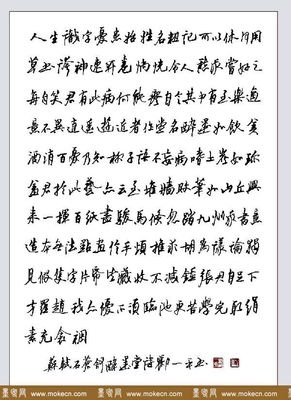 人生識字憂患始姓名粗記可以休何用
草書誇神速開卷惝怳令人愁我嘗好之
每自笑君有此病何能瘳自言其中有至樂適
意不異逍遥遊近者作堂名醉墨如飲美
酒消百憂乃知柳子語不妄病嗜土炭如珍
羞君於此藝亦云至堆墻敗筆如山丘興
來一揮百紙盡駿馬倏忽踏九州我書意
造本無法點畫信手煩推求胡為議論獨
見假隻字片紙皆藏收不減鍾張君自足下
方羅趙我亦優不須臨池更苦學完取絹
素充衾裯
蘇軾石蒼舒醉墨堂詩
www.mokecn.com www.mokecn.com www.mokecn.com